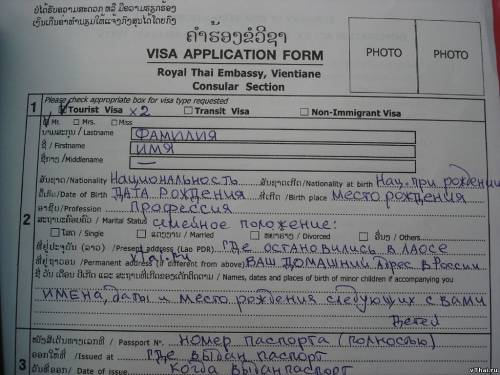 ບໍ່ໄດ້ຮັບຄວາມສະດວກ ຫລື ມີຄວາມຮຽກຮ້ອງ
ຄຳຮ້ອງຂໍວີຊາ
VISA APPLICATION FORM
Royal Thai Embassy, Vientiane
Consular Section
PHOTO PHOTO
1 Please check appropriate box for visa type requested
Tourist Visa x2 Transit Visa Non-Immigrant Visa
Mr. Mrs. Miss
ນາມສະກຸນ / Lastname ФАМИЛИЯ
ຊື່ / Firstname ИМЯ
/Middlename —
ສັນຊາດ/Nationality НАЦИОНАЛЬНОСТЬ ສັນຊາດເກີດ/Nationality at birth НАЦ. при рождении
/Date of Birth ДАТА РОЖДЕНИЯ ທີ່ເກີດ/Birth place место рождения
2 ອາຊີບ/Profession Профессия
/ Marital Status семейное положение:
ໂສດ / Single ແຕ່ງງານ / Married / Divorced ອື່ນໆ / Others
ທີ່ຢູ່ປະຈຸບັນ (ລາວ) /Present address (Lao PDR) ГДЕ остановились в ЛАОСЕ
/Permanent address (if different from above) ВАШ ДОМАШНИЙ Адрес в России
/ Names, dates and places of birth of minor children if accompanying you
ИМЕНА, даты и место рождения следующих с вами
детей
/ Passport Nº. номер паспорта (полностью)
3 ອອກໃຫ້ທີ່ /Issued at ГДЕ выдан паспорт
/Date of issue когда выдан паспорт
v7hai.ru